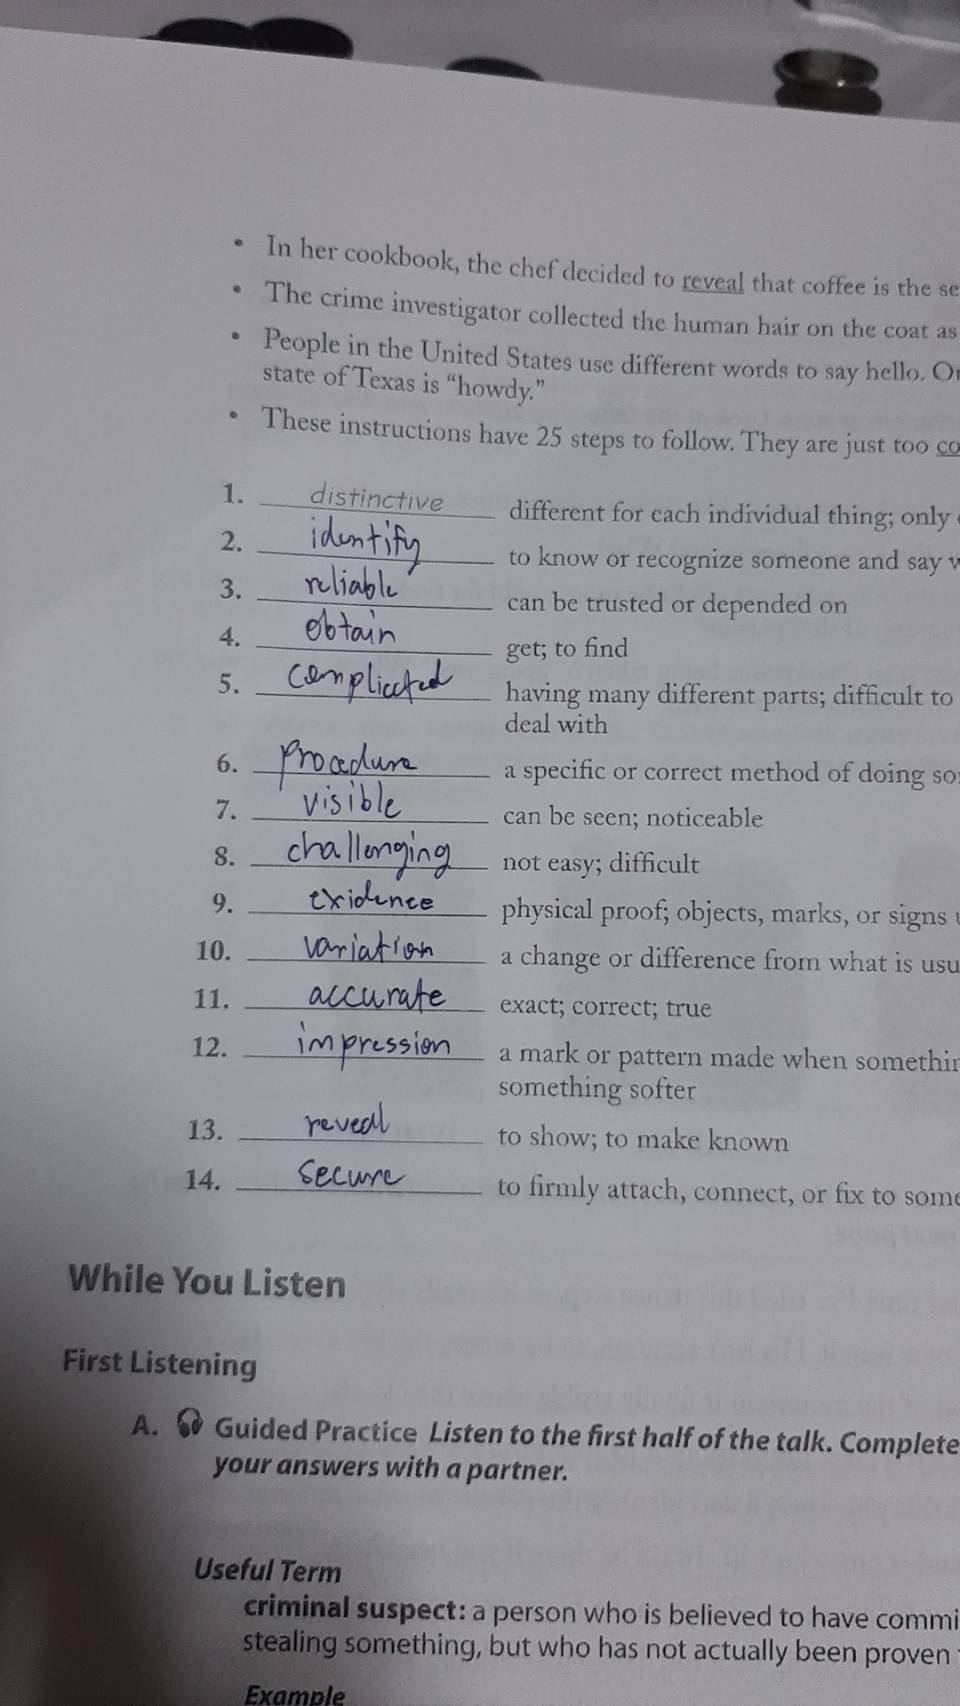 • In her cookbook, the chef decided to reveal that coffee is the se
• The crime investigator collected the human hair on the coat as
• People in the United States use different words to say hello. On
state of Texas is “howdy.”
• These instructions have 25 steps to follow. They are just too co
1. distinctive different for each individual thing; only
2. identify to know or recognize someone and say w
3. reliable can be trusted or depended on
4. obtain get; to find
5. complicated having many different parts; difficult to
deal with
6. procedure a specific or correct method of doing so
7. visible can be seen; noticeable
8. challenging not easy; difficult
9. exidence physical proof; objects, marks, or signs
10. variation a change or difference from what is usu
11. accurate exact; correct; true
12. impression a mark or pattern made when somethin
something softer
13. reveal to show; to make known
14. secure to firmly attach, connect, or fix to some
While You Listen
First Listening
A. Guided Practice Listen to the first half of the talk. Complete
your answers with a partner.
Useful Term
criminal suspect: a person who is believed to have commi
stealing something, but who has not actually been proven
Example